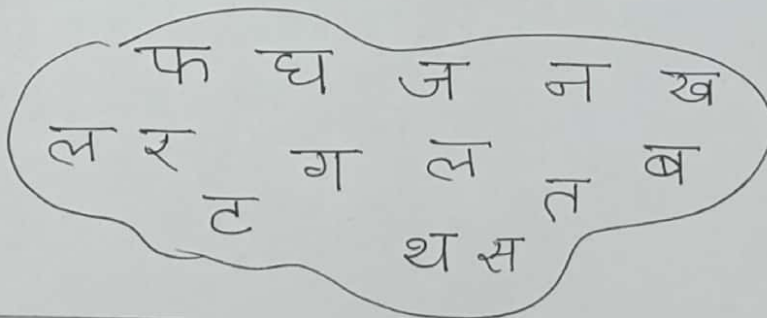 फ घ ज न ख
ल र ग ल ब
ट त
थ स